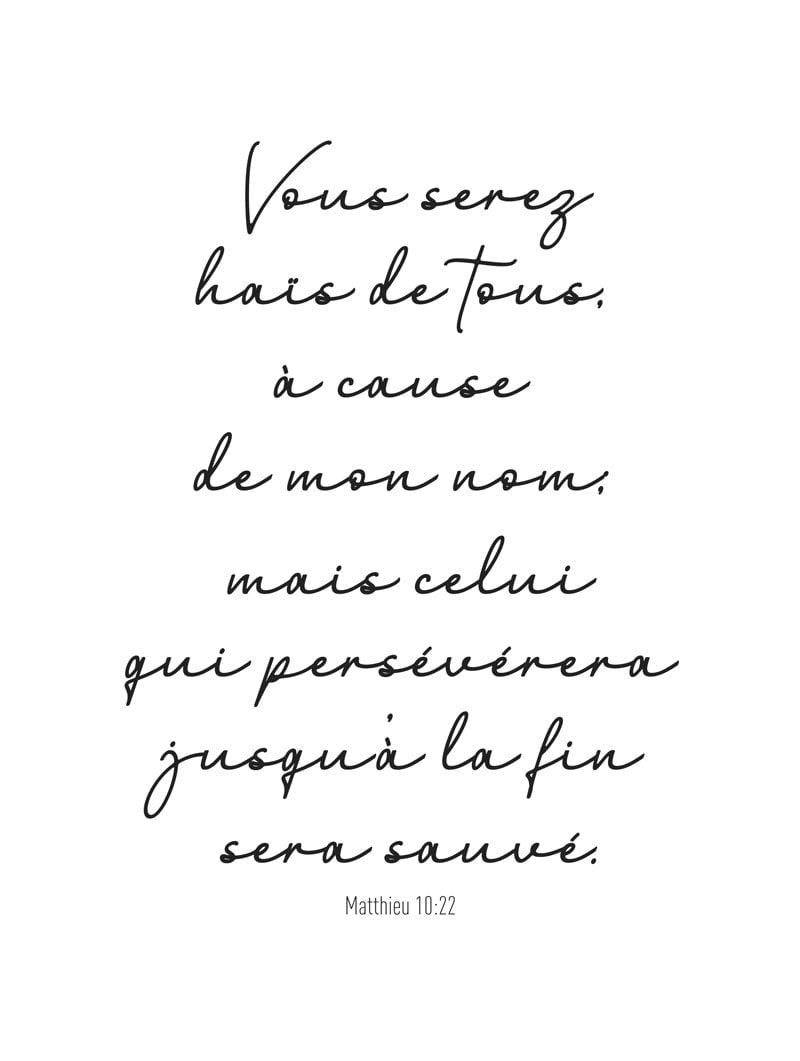 Vous serez
haïs de tous,
à cause
de mon nom;
mais celui
qui persévérera
jusqu'à la fin
sera sauvé.
Matthieu 10:22